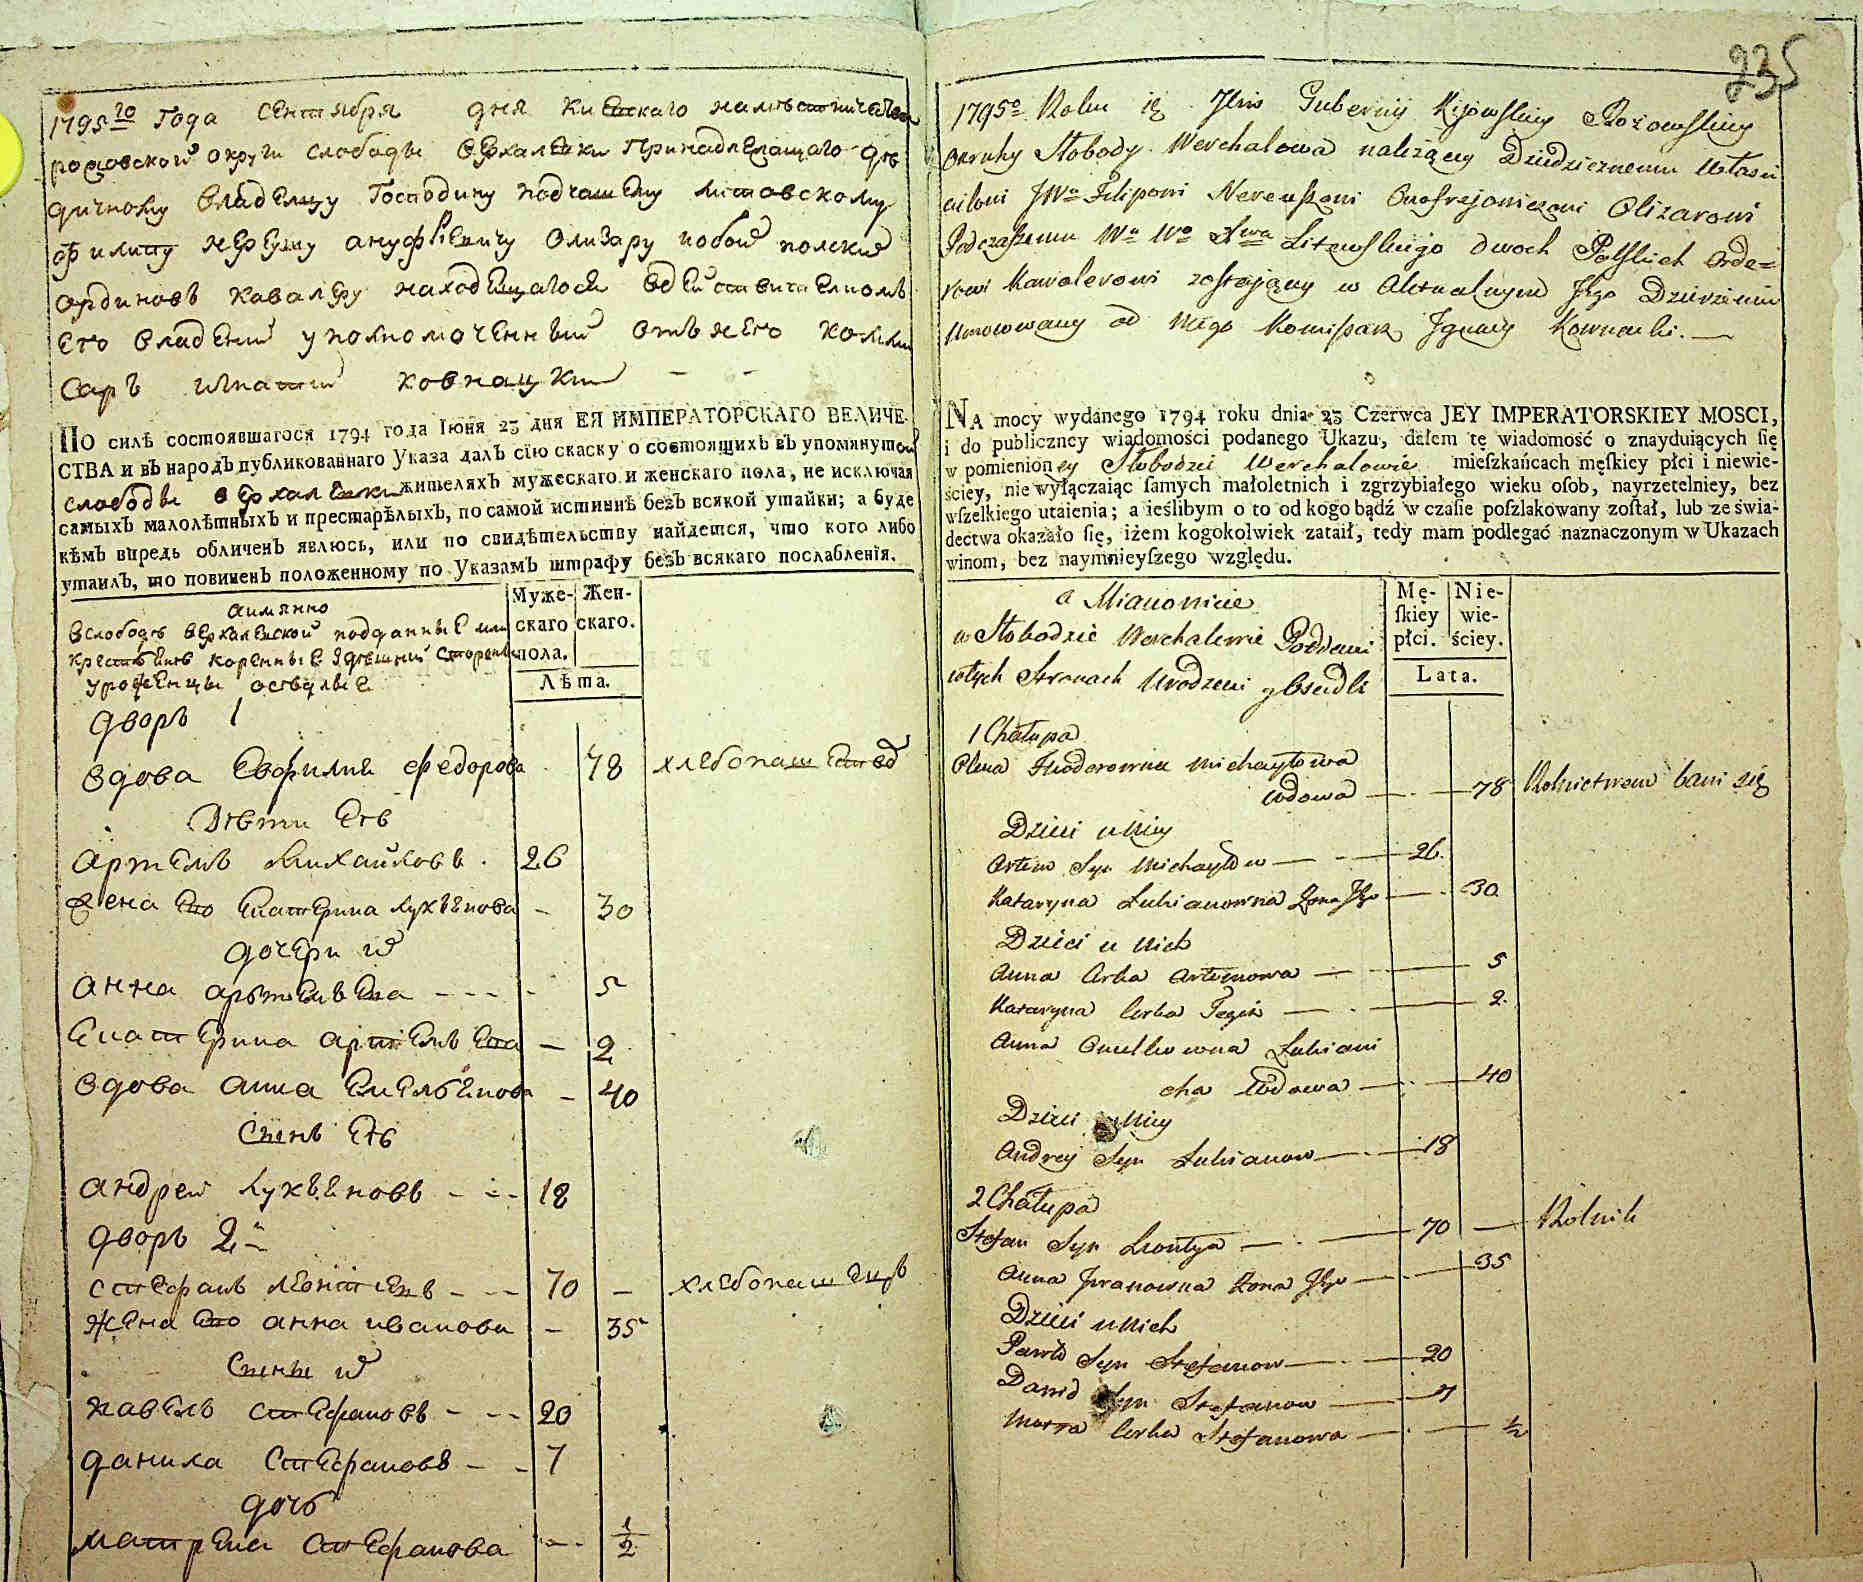 1795го Года сентября дня Киевскаго наместничества
рожовской округи слободы верхалевки принадлежащаго дѣ
дичному владельцу Господину подчашему литовскому
филипу нереушу ануфрѣевичу Олизару обоих полских
ординовъ кавалеру находещагося въ действителномъ
его владении уполномоченный отъ него комми
саръ игнатий ковнацкий
ПО силѣ состоявшагося 1794 года Іюня 23 дня ЕЯ ИМПЕРАТОРСКАГО ВЕЛИЧЕ-
СТВА и въ народъ публикованнаго Указа далъ сію скаску о состоящихъ въ упомянутой
слободы верхалевки жителяхъ мужескаго и женскаго пола, не исключая
самыхъ малолѣтныхъ и престарѣлыхъ, по самой истиннѣ безъ всякой утайки; а буде
кѣмъ впредь обличенъ явлюсь, или по свидѣтельству найдется, что кого либо
утаилъ, то повиненъ положенному по Указамъ штрафу безъ всякаго послабленія.
аимянно
вслободѣ верхалевской подданные или
крестьяне коренные здешний стороны
уроженцы оседлые
Муже-
скаго
пола.
Жен-
скаго.
Лѣта.
дворъ 1
вдова Евфимия федорова 78 хлебопашествод
Дѣти Еѣ
артемъ михайловъ 26
жена Его Екатерина лукьянова - 30
дочери их
анна артемьева - - - - 5
Екатерина артемьева - 2
вдова анна Емельянова - 40
Сынъ Еѣ
андрей лукьяновъ - - - 18
дворъ 2й
стефанъ леонтиевъ - - - 70 - хлебопашецъ
жена Его анна иванова - 35
Сыны их
павелъ стефановъ - - - 20
данила Стефановъ - - 7
дочь
матрена Стефанова - - - 1/2
235
1795o Roku 7bris Gubernij Kijowskiey Rożowskiey
Okruhy Słobody Werchalowa należącey Dziedzicznemu Własci
cielowi JWo Filipowi Nereuszowi Onofrejowiczowi Olizarowi
Podczaszemu Wo Wo Xwa Litewskiego dwoch Polskich Orde=
rowi Kawalerowi zostającey w Aktualnym Jego Dzierzeniu
Umocowany od niego Komissarz Jgnacy Kownacki.
NA mocy wydanego 1794 roku dnia 23 Czerwca JEY IMPERATORSKIEY MOSCI,
i do publiczney wiadomości podanego Ukazu, dałem tę wiadomość o znayduiących ſię
w pomienioney Słobodzie Werchalowie mieſzkańcach męſkiey płci i niewie-
ściey, nie wyłączaiąc ſamych małoletnich i zgrzybiałego wieku oſob, nayrzetelniey, bez
wſzelkiego utaienia; a ieślibym o to od kogo bądź w czaſie poſzlakowany zoſtał, lub ze świa-
dectwa okazało ſię, iżem kogokolwiek zataił, tedy mam podlegać naznaczonym w Ukazach
winom, bez naymnieyſzego względu.
a Mianowicie
w Słobodzie Werchalewie Poddani
w tych Stronach Urodzeni y Osiedli
Mę-
ſkiey
płci.
Nie-
wie-
ściey.
Lata.
1 Chałupa
Olena Fiodorowna Michayłowa
Wdowa 78 Rolnictwem bawi się
Dzieci u Niey
Artem Syn Michayłow 26.
Kataryna Lukianowna Żona Jego 30
Dzieci u Nich
Anna Corka Artemowa 5
Kataryna Corka Tegoż 2.
Anna Omelkowna Lukiani
cha Wdowa 40
Dzieci u Niey
Andrey Syn Lukianow 18
2 Chałupa
Stefan Syn Leontya 70 Rolnik
Anna Jwanowna Żona Jego 35
Dzieci u Nich
Pawło Syn Stefanow 20
Daniło Syn Stefanow 7
Motra Corka Stefanowa 1/2